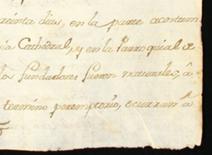 treinta dias, en la parte acostum
ia Cathedral, y en la Parroquial
los fundadores fueron naturales, â
termino peremptorio, ocurran â